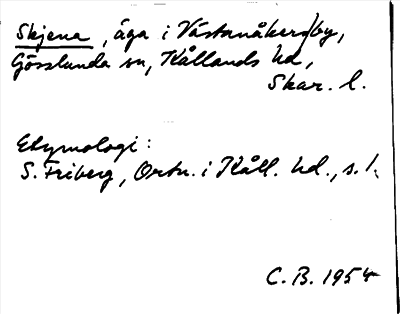 Skjena, äga i Västanåkers by,
Gösslunda sn, Kållands hd,
Skar. l.
Etymologi:
S. Friberg, Ortn. i Kåll. hd., s. 1.
C. B. 1954